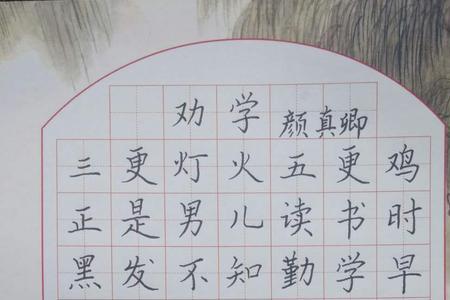 劝学
颜真卿
三更灯火五更鸡
正是男儿读书时
黑发不知勤学早